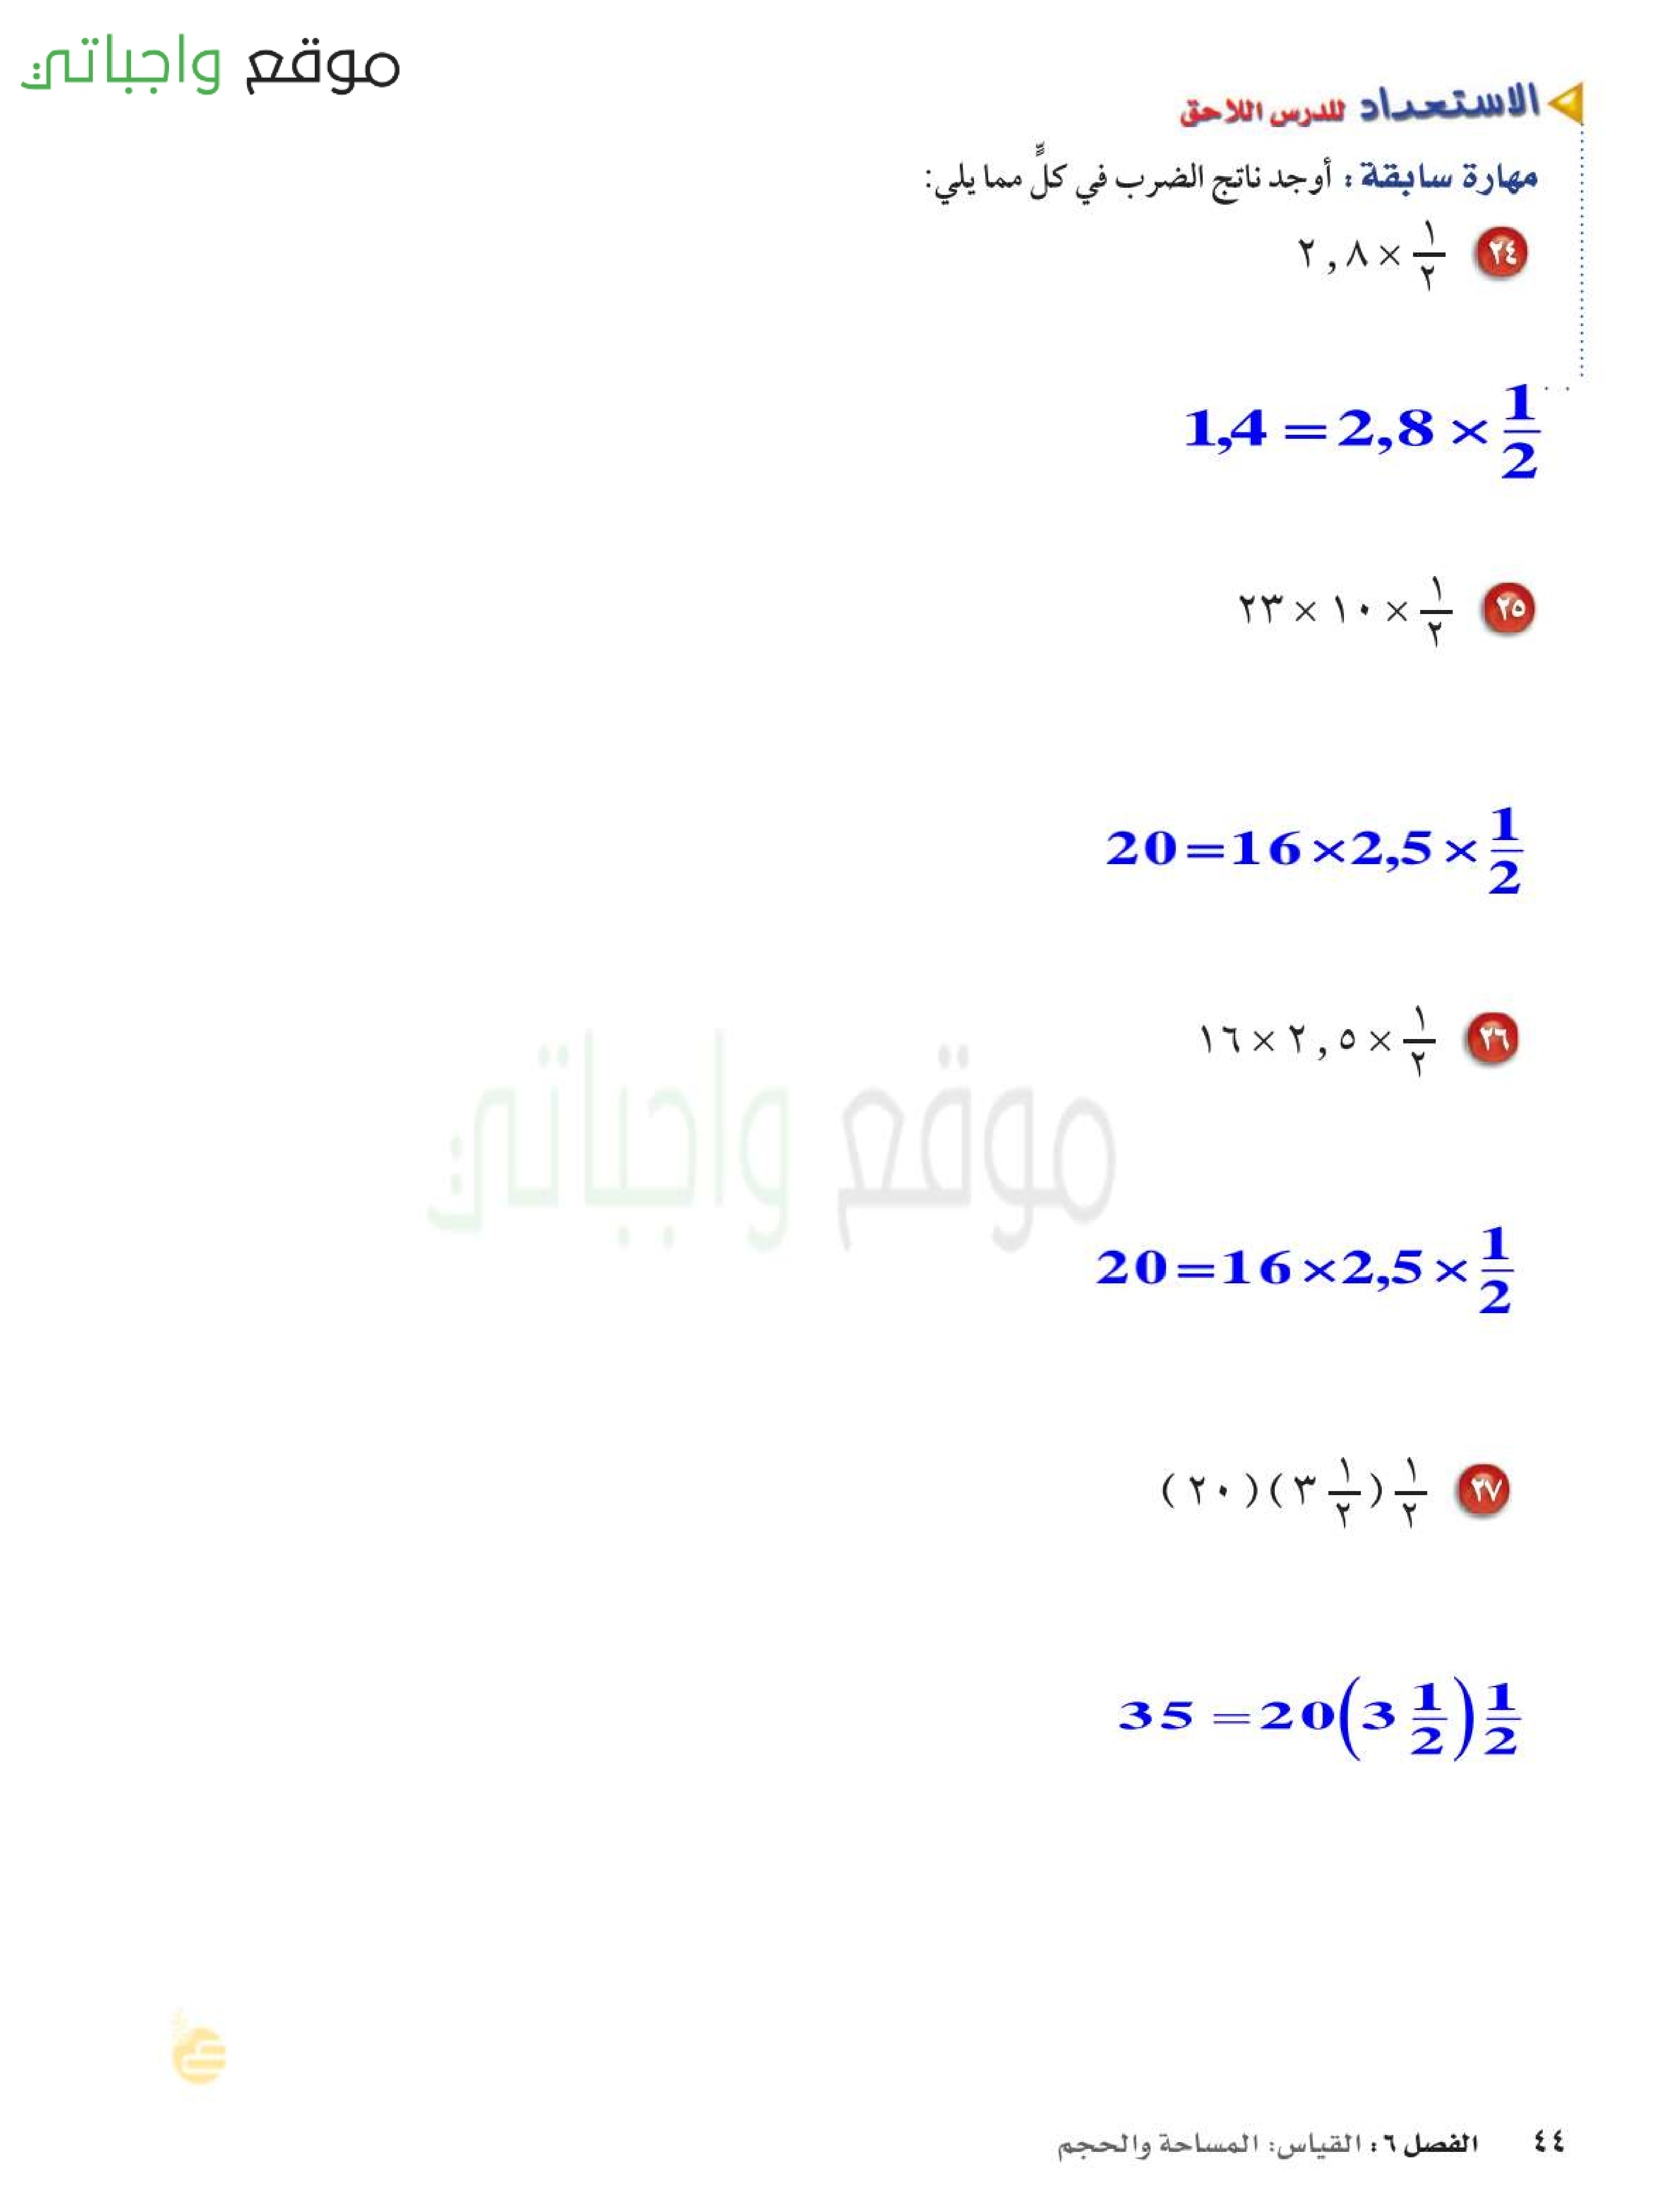 موقع واجباتي
الاستعداد للدرس اللاحق
مهارة سابقة : أوجد ناتج الضرب في كلٍّ مما يلي:
٢٤ ١/٢ × ٢,٨
1,4 = 2,8 × 1/2
٢٥ ١/٢ × ١٠ × ٢٣
20 = 16 × 2,5 × 1/2
٢٦ ١/٢ × ٢,٥ × ١٦
موقع واجباتي
20 = 16 × 2,5 × 1/2
٢٧ ١/٢ (٣ ١/٢) (٢٠)
35 = 20(3 1/2) 1/2
٤٤ الفصل ٦ : القياس: المساحة والحجم